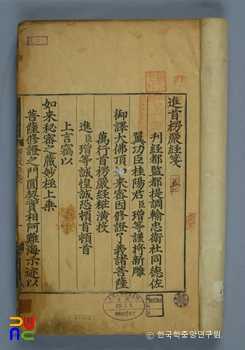 進首楞嚴經箋
刊經都監都提調輸忠衛社同德佐
翼功臣桂陽君臣璔等謹將新雕
御譯大佛頂如來密因修證了義諸菩薩
萬行首楞嚴經粧潢投
進臣璔等誠惶誠恐頓首頓首
上言竊以
如來秘密之藏妙極上乘
菩薩修證之門圓契實相阿難示迹以
©한국학중앙연구원